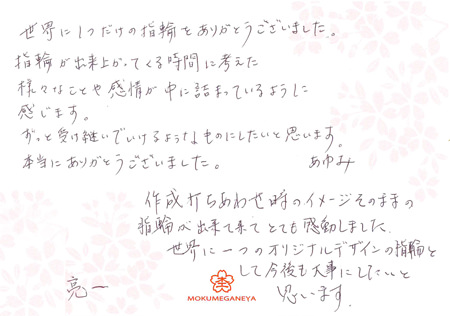 世界に1つだけの指輪をありがとうございました。
指輪が出来上がってくる時間に考えた
様々なことや感情が中に詰まっているように
感じます。
ずっと受け継いでいけるようなものにしたいと思います。
本当にありがとうございました。
あゆみ
作成打ちあわせ時のイメージそのままの
指輪が出来て来てとても感動しました。
世界に一つのオリジナルデザインの指輪と
して今後も大事にしたいと
思います。
亮一
MOKUMEGANEYA